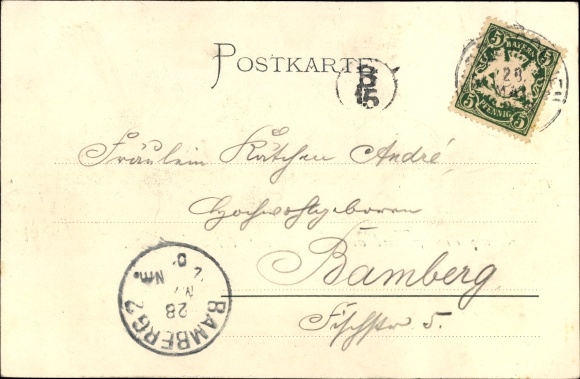 POSTKARTE
B
15
5 BAYERN 5
5 PFENNIG 5
28
Fräulein Kätchen André,
Hochwohlgeboren
Bamberg
Fischstr 5.
BAMBERG 2
28